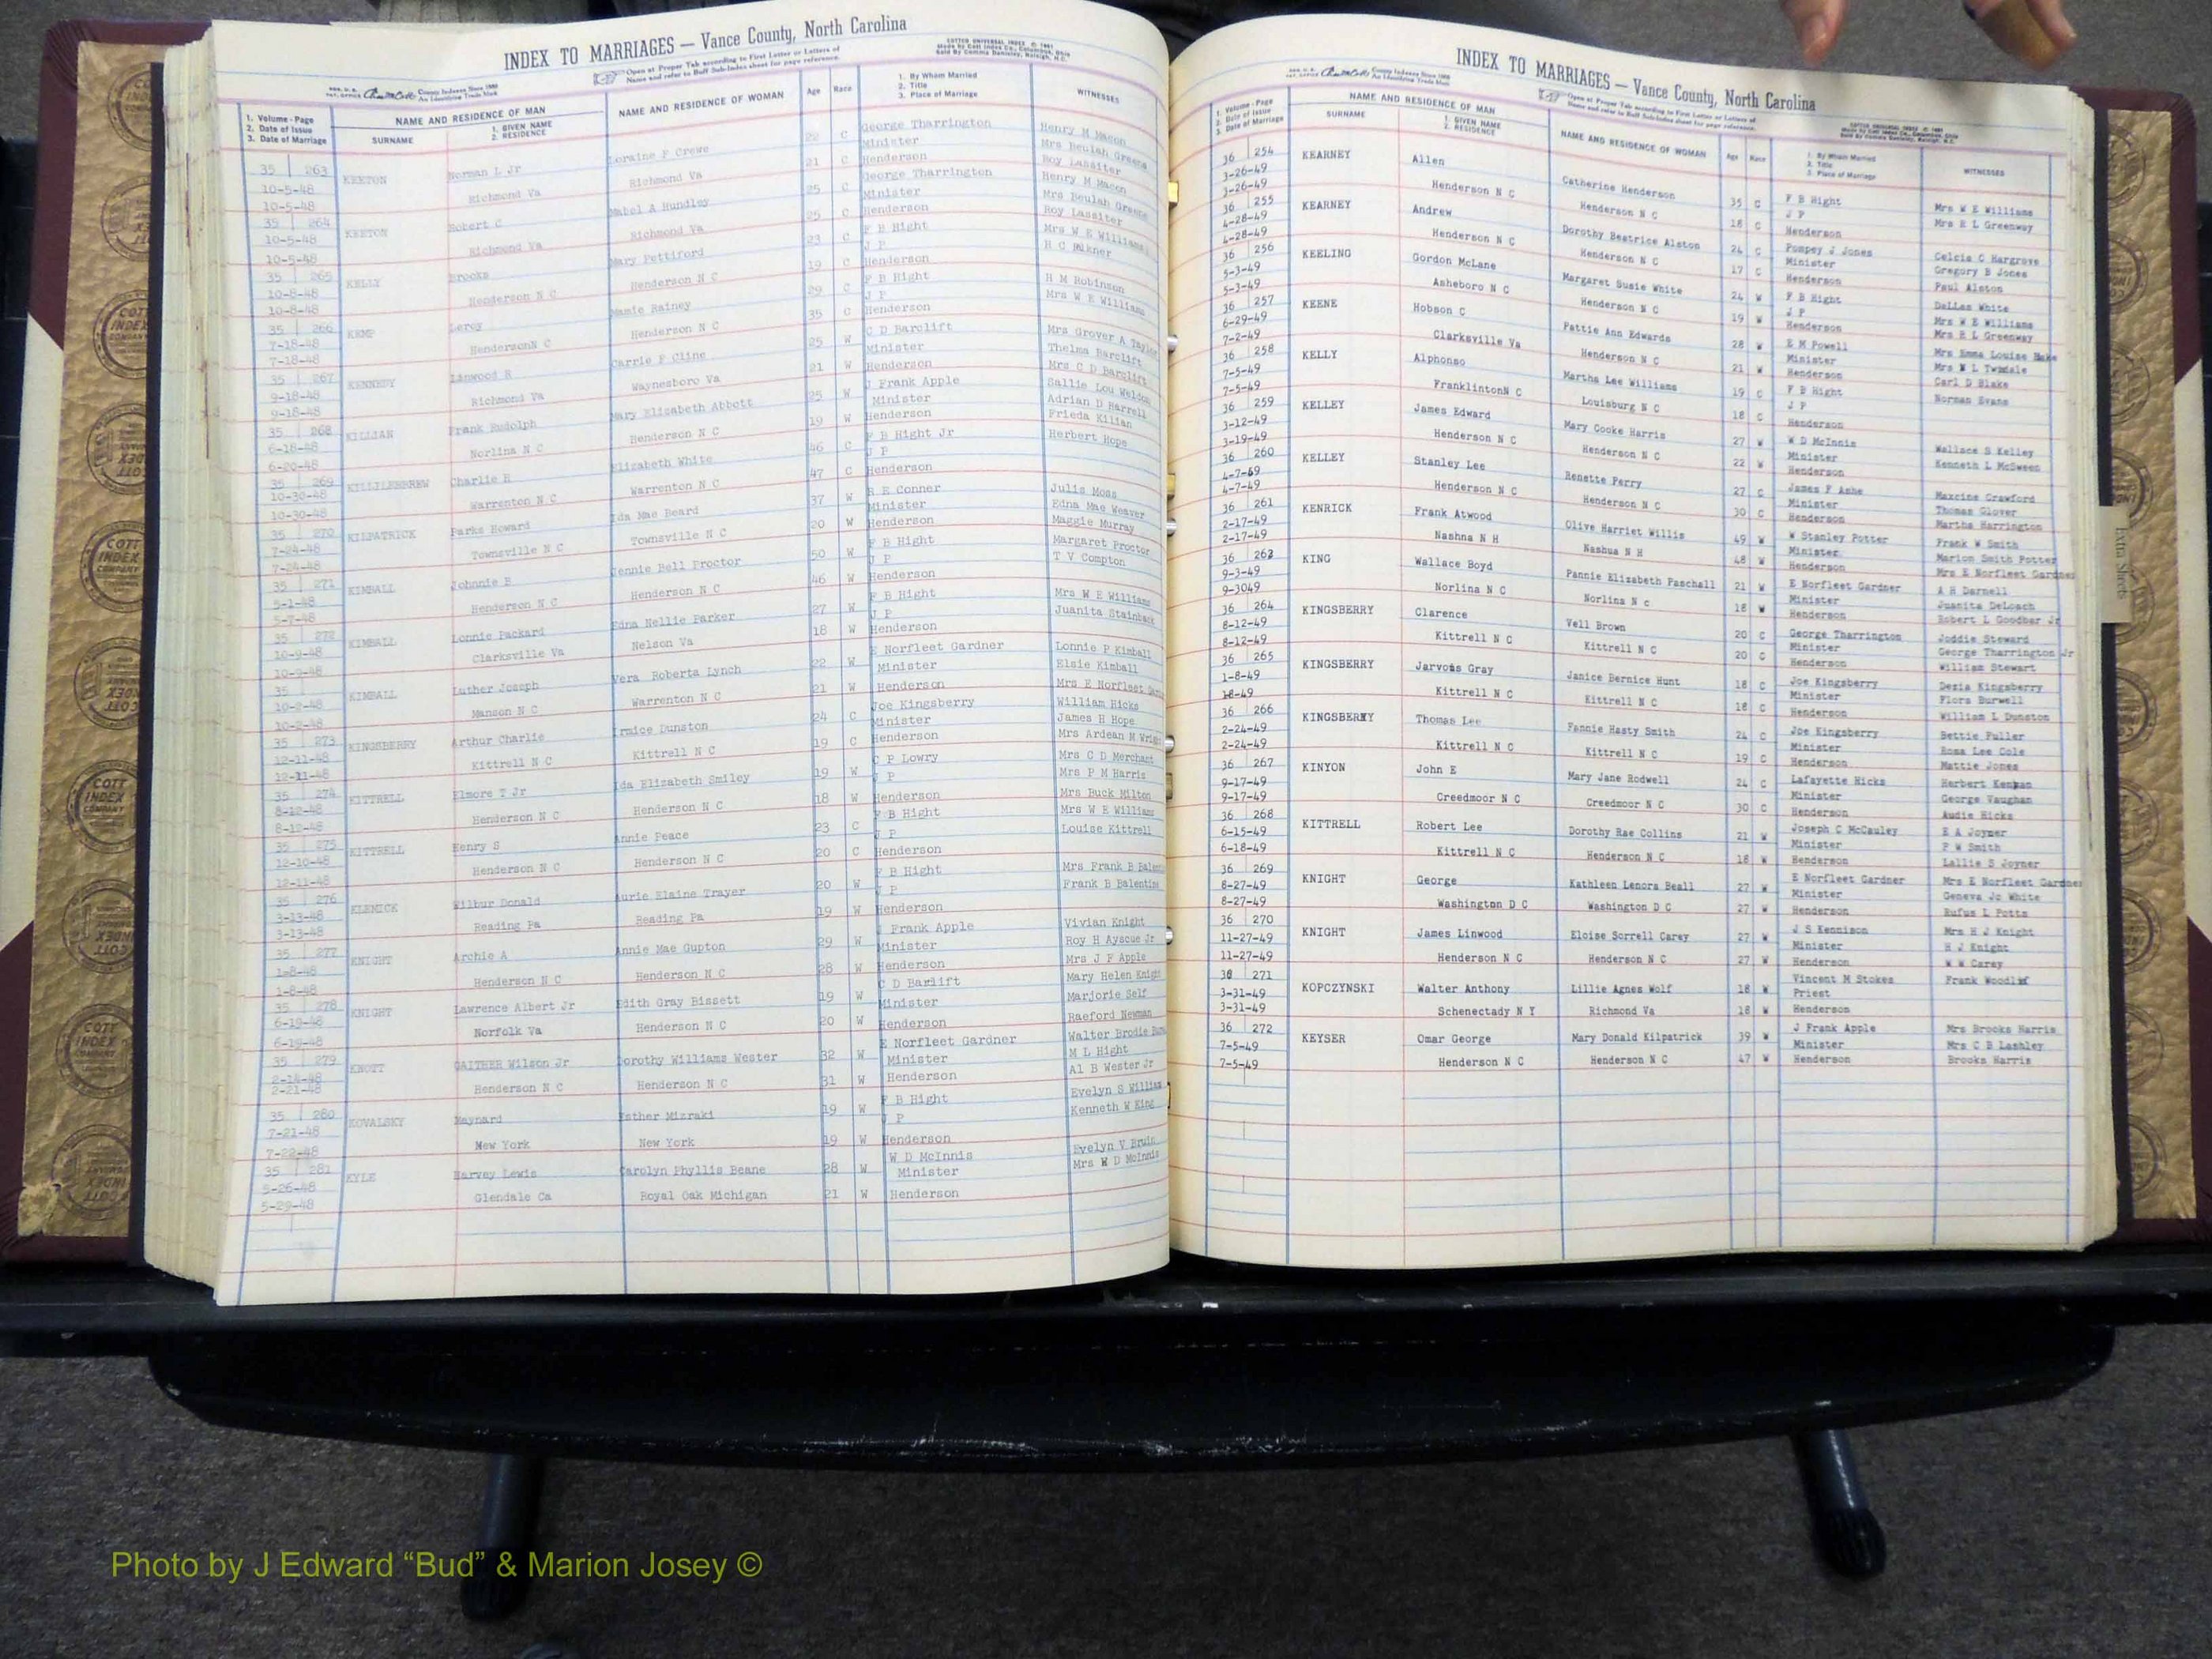 INDEX TO MARRIAGES — Vance County, North Carolina
Open at Proper Tab according to First Letter or Letters of
Name and refer to Buff Sub-Index sheet for page reference.
COTTCO UNIVERSAL INDEX
1. Volume - Page
2. Date of Issue
3. Date of Marriage
NAME AND RESIDENCE OF MAN
SURNAME
1. GIVEN NAME
2. RESIDENCE
NAME AND RESIDENCE OF WOMAN
Age Race
1. By Whom Married
2. Title
3. Place of Marriage
WITNESSES
35 263 KEETON Norman L Jr Loraine F Crewe 22 C George Tharrington Henry M Macon
10-5-48 Richmond Va Richmond Va 21 C Minister Mrs Beulah Greene
10-5-48 Henderson Roy Lassiter
35 264 KEETON Robert C Mabel A Hundley 25 C George Tharrington Henry M Macon
10-5-48 Richmond Va Richmond Va 25 C Minister Mrs Beulah Greene
10-5-48 Henderson Roy Lassiter
35 265 KELLY Brooks Mary Pettiford 23 C F B Hight Mrs W E Williams
10-8-48 Henderson N C Henderson N C 19 C J P H C Falkner
10-8-48 Henderson
35 266 KEMP Leroy Mamie Rainey 29 C F B Hight H M Robinson
7-18-48 HendersonN C Henderson N C 35 C J P Mrs W E Williams
7-18-48 Henderson
35 267 KENNEDY Linwood R Carrie F Cline 25 W C D Barclift Mrs Grover A Taylor
9-18-48 Richmond Va Waynesboro Va 21 W Minister Thelma Barclift
9-18-48 Henderson Mrs C D Barclift
35 268 KILLIAN Frank Rudolph Mary Elizabeth Abbott 25 W J Frank Apple Sallie Lou Weldon
6-18-48 Norlina N C Henderson N C 19 W Minister Adrian D Harrell
6-20-48 Henderson Frieda Kilian
35 269 KILLILEBREW Charlie H Elizabeth White 46 C F B Hight Jr Herbert Hope
10-30-48 Warrenton N C Warrenton N C 47 C J P
10-30-48 Henderson
35 270 KILPATRICK Parks Howard Ida Mae Beard 37 W R E Conner Julis Moss
7-24-48 Townsville N C Townsville N C 20 W Minister Edna Mae Weaver
7-24-48 Henderson Maggie Murray
35 271 KIMBALL Johnnie B Jennie Bell Proctor 50 W F B Hight Margaret Proctor
5-1-48 Henderson N C Henderson N C 46 W J P T V Compton
5-7-48 Henderson
35 272 KIMBALL Lonnie Packard Edna Nellie Parker 27 W F B Hight Mrs W E Williams
10-9-48 Clarksville Va Nelson Va 18 W J P Juanita Stainback
10-9-48 Henderson
35 KIMBALL Luther Joseph Vera Roberta Lynch 22 W E Norfleet Gardner Lonnie P Kimball
10-2-48 Manson N C Warrenton N C 21 W Minister Elsie Kimball
10-2-48 Henderson Mrs E Norfleet
35 273 KINGSBERRY Arthur Charlie Ermice Dunston 24 C Joe Kingsberry William Hicks
12-11-48 Kittrell N C Kittrell N C 19 C Minister James H Hope
12-11-48 Henderson Mrs Ardean M
35 274 KITTRELL Elmore T Jr Ida Elizabeth Smiley 19 W C P Lowry Mrs C D Merchant
8-12-48 Henderson N C Henderson N C 18 W J P Mrs P M Harris
8-12-48 Henderson Mrs Buck Milton
35 275 KITTRELL Henry S Annie Peace 23 C F B Hight Mrs W E Williams
12-10-48 Henderson N C Henderson N C 20 C J P Louise Kittrell
12-11-48 Henderson
35 276 KLEMICK Wilbur Donald Aurie Elaine Trayer 20 W F B Hight Mrs Frank B
3-13-48 Reading Pa Reading Pa 19 W J P Frank B Balentine
3-13-48 Henderson
35 277 KNIGHT Archie A Annie Mae Gupton 29 W J Frank Apple Vivian Knight
1-8-48 Henderson N C Henderson N C 28 W Minister Roy H Ayscue Jr
1-8-48 Henderson Mrs J F Apple
35 278 KNIGHT Lawrence Albert Jr Edith Gray Bissett 19 W C D Barlift Mary Helen Knight
6-19-48 Norfolk Va Henderson N C 20 W Minister Marjorie Self
6-19-48 Henderson Raeford Newman
35 279 KNOTT GAITHER Wilson Jr Dorothy Williams Wester 32 W E Norfleet Gardner Walter Brodie
2-14-48 Henderson N C Henderson N C 31 W Minister M L Hight
2-21-48 Henderson Al B Wester Jr
35 280 KOVALSKY Maynard Esther Mizraki 19 W F B Hight Evelyn S
7-21-48 New York New York 19 W J P Kenneth W King
7-22-48 Henderson
35 281 KYLE Harvey Lewis Carolyn Phyllis Beane 28 W W D McInnis Evelyn V
5-26-48 Glendale Ca Royal Oak Michigan 21 W Minister Mrs W D McInnis
5-29-48 Henderson
INDEX TO MARRIAGES — Vance County, North Carolina
Open at Proper Tab according to First Letter or Letters of
Name and refer to Buff Sub-Index sheet for page reference.
1. Volume - Page
2. Date of Issue
3. Date of Marriage
NAME AND RESIDENCE OF MAN
SURNAME
1. GIVEN NAME
2. RESIDENCE
NAME AND RESIDENCE OF WOMAN
Age Race
1. By Whom Married
2. Title
3. Place of Marriage
WITNESSES
36 254 KEARNEY Allen Catherine Henderson 35 C F B Hight Mrs W E Williams
3-26-49 Henderson N C Henderson N C 18 C J P Mrs R L Greenway
3-26-49 Henderson
36 255 KEARNEY Andrew Dorothy Beatrice Alston 24 C Pompey J Jones Celcia C Hargrove
4-28-49 Henderson N C Henderson N C 17 C Minister Gregory B Jones
4-28-49 Henderson Paul Alston
36 256 KEELING Gordon McLane Margaret Susie White 24 W F B Hight DeLles White
5-3-49 Asheboro N C Henderson N C 19 W J P Mrs W E Williams
5-3-49 Henderson Mrs R L Greenway
36 257 KEENE Hobson C Pattie Ann Edwards 28 W E M Powell Mrs Emma Louise
6-29-49 Clarksville Va Henderson N C 21 W Minister Mrs W L
7-2-49 Henderson Carl D Blake
36 258 KELLY Alphonso Martha Lee Williams 19 C F B Hight Norman Evans
7-5-49 FranklintonN C Louisburg N C 18 C J P
7-5-49 Henderson
36 259 KELLEY James Edward Mary Cooke Harris 27 W W D McInnis Wallace S Kelley
3-12-49 Henderson N C Henderson N C 22 W Minister Kenneth L McSween
3-19-49 Henderson
36 260 KELLEY Stanley Lee Renette Perry 27 C James F Ashe Maxcine Crawford
4-7-69 Henderson N C Henderson N C 30 C Minister Thomas Glover
4-7-49 Henderson Martha Harrington
36 261 KENRICK Frank Atwood Olive Harriet Willis 49 W W Stanley Potter Frank W Smith
2-17-49 Nashna N H Nashua N H 48 W Minister Marion Smith Potter
2-17-49 Henderson Mrs E Norfleet Gardner
36 263 KING Wallace Boyd Pannie Elizabeth Paschall 21 W E Norfleet Gardner A H Darnell
9-3-49 Norlina N C Norlina N c 18 W Minister Juanita DeLoach
9-3049 Henderson Robert L Goodber Jr
36 264 KINGSBERRY Clarence Vell Brown 20 C George Tharrington Joddie Steward
8-12-49 Kittrell N C Kittrell N C 20 C Minister George Tharrington Jr
8-12-49 Henderson William Stewart
36 265 KINGSBERRY Jarvois Gray Janice Bernice Hunt 18 C Joe Kingsberry Dezia Kingsberry
1-8-49 Kittrell N C Kittrell N C 18 C Minister Flora Burwell
18-49 Henderson William L Dunston
36 266 KINGSBERRY Thomas Lee Fannie Hasty Smith 24 C Joe Kingsberry Bettie Fuller
2-24-49 Kittrell N C Kittrell N C 19 C Minister Rosa Lee Cole
2-24-49 Henderson Mattie Jones
36 267 KINYON John E Mary Jane Rodwell 24 C Lafayette Hicks Herbert
9-17-49 Creedmoor N C Creedmoor N C 30 C Minister George Vaughan
9-17-49 Henderson Audie Hicks
36 268 KITTRELL Robert Lee Dorothy Rae Collins 21 W Joseph C McCauley E A Joyner
6-15-49 Kittrell N C Henderson N C 18 W Minister P W Smith
6-18-49 Henderson Lallie S Joyner
36 269 KNIGHT George Kathleen Lenora Beall 27 W E Norfleet Gardner Mrs E Norfleet Gardner
8-27-49 Washington D C Washington D C 27 W Minister Geneva Jo White
8-27-49 Henderson Rufus L Potts
36 270 KNIGHT James Linwood Eloise Sorrell Carey 27 W J S Kennison Mrs H J Knight
11-27-49 Henderson N C Henderson N C 27 W Minister H J Knight
11-27-49 Henderson W W Carey
36 271 KOPCZYNSKI Walter Anthony Lillie Agnes Wolf 18 W Vincent M Stokes Frank
3-31-49 Schenectady N Y Richmond Va 18 W Priest
3-31-49 Henderson
36 272 KEYSER Omar George Mary Donald Kilpatrick 39 W J Frank Apple Mrs Brooks Harris
7-5-49 Henderson N C Henderson N C 47 W Minister Mrs C B Lashley
7-5-49 Henderson Brooks Harris
Extra Sheets
COTT INDEX COMPANY
Photo by J Edward “Bud” & Marion Josey ©